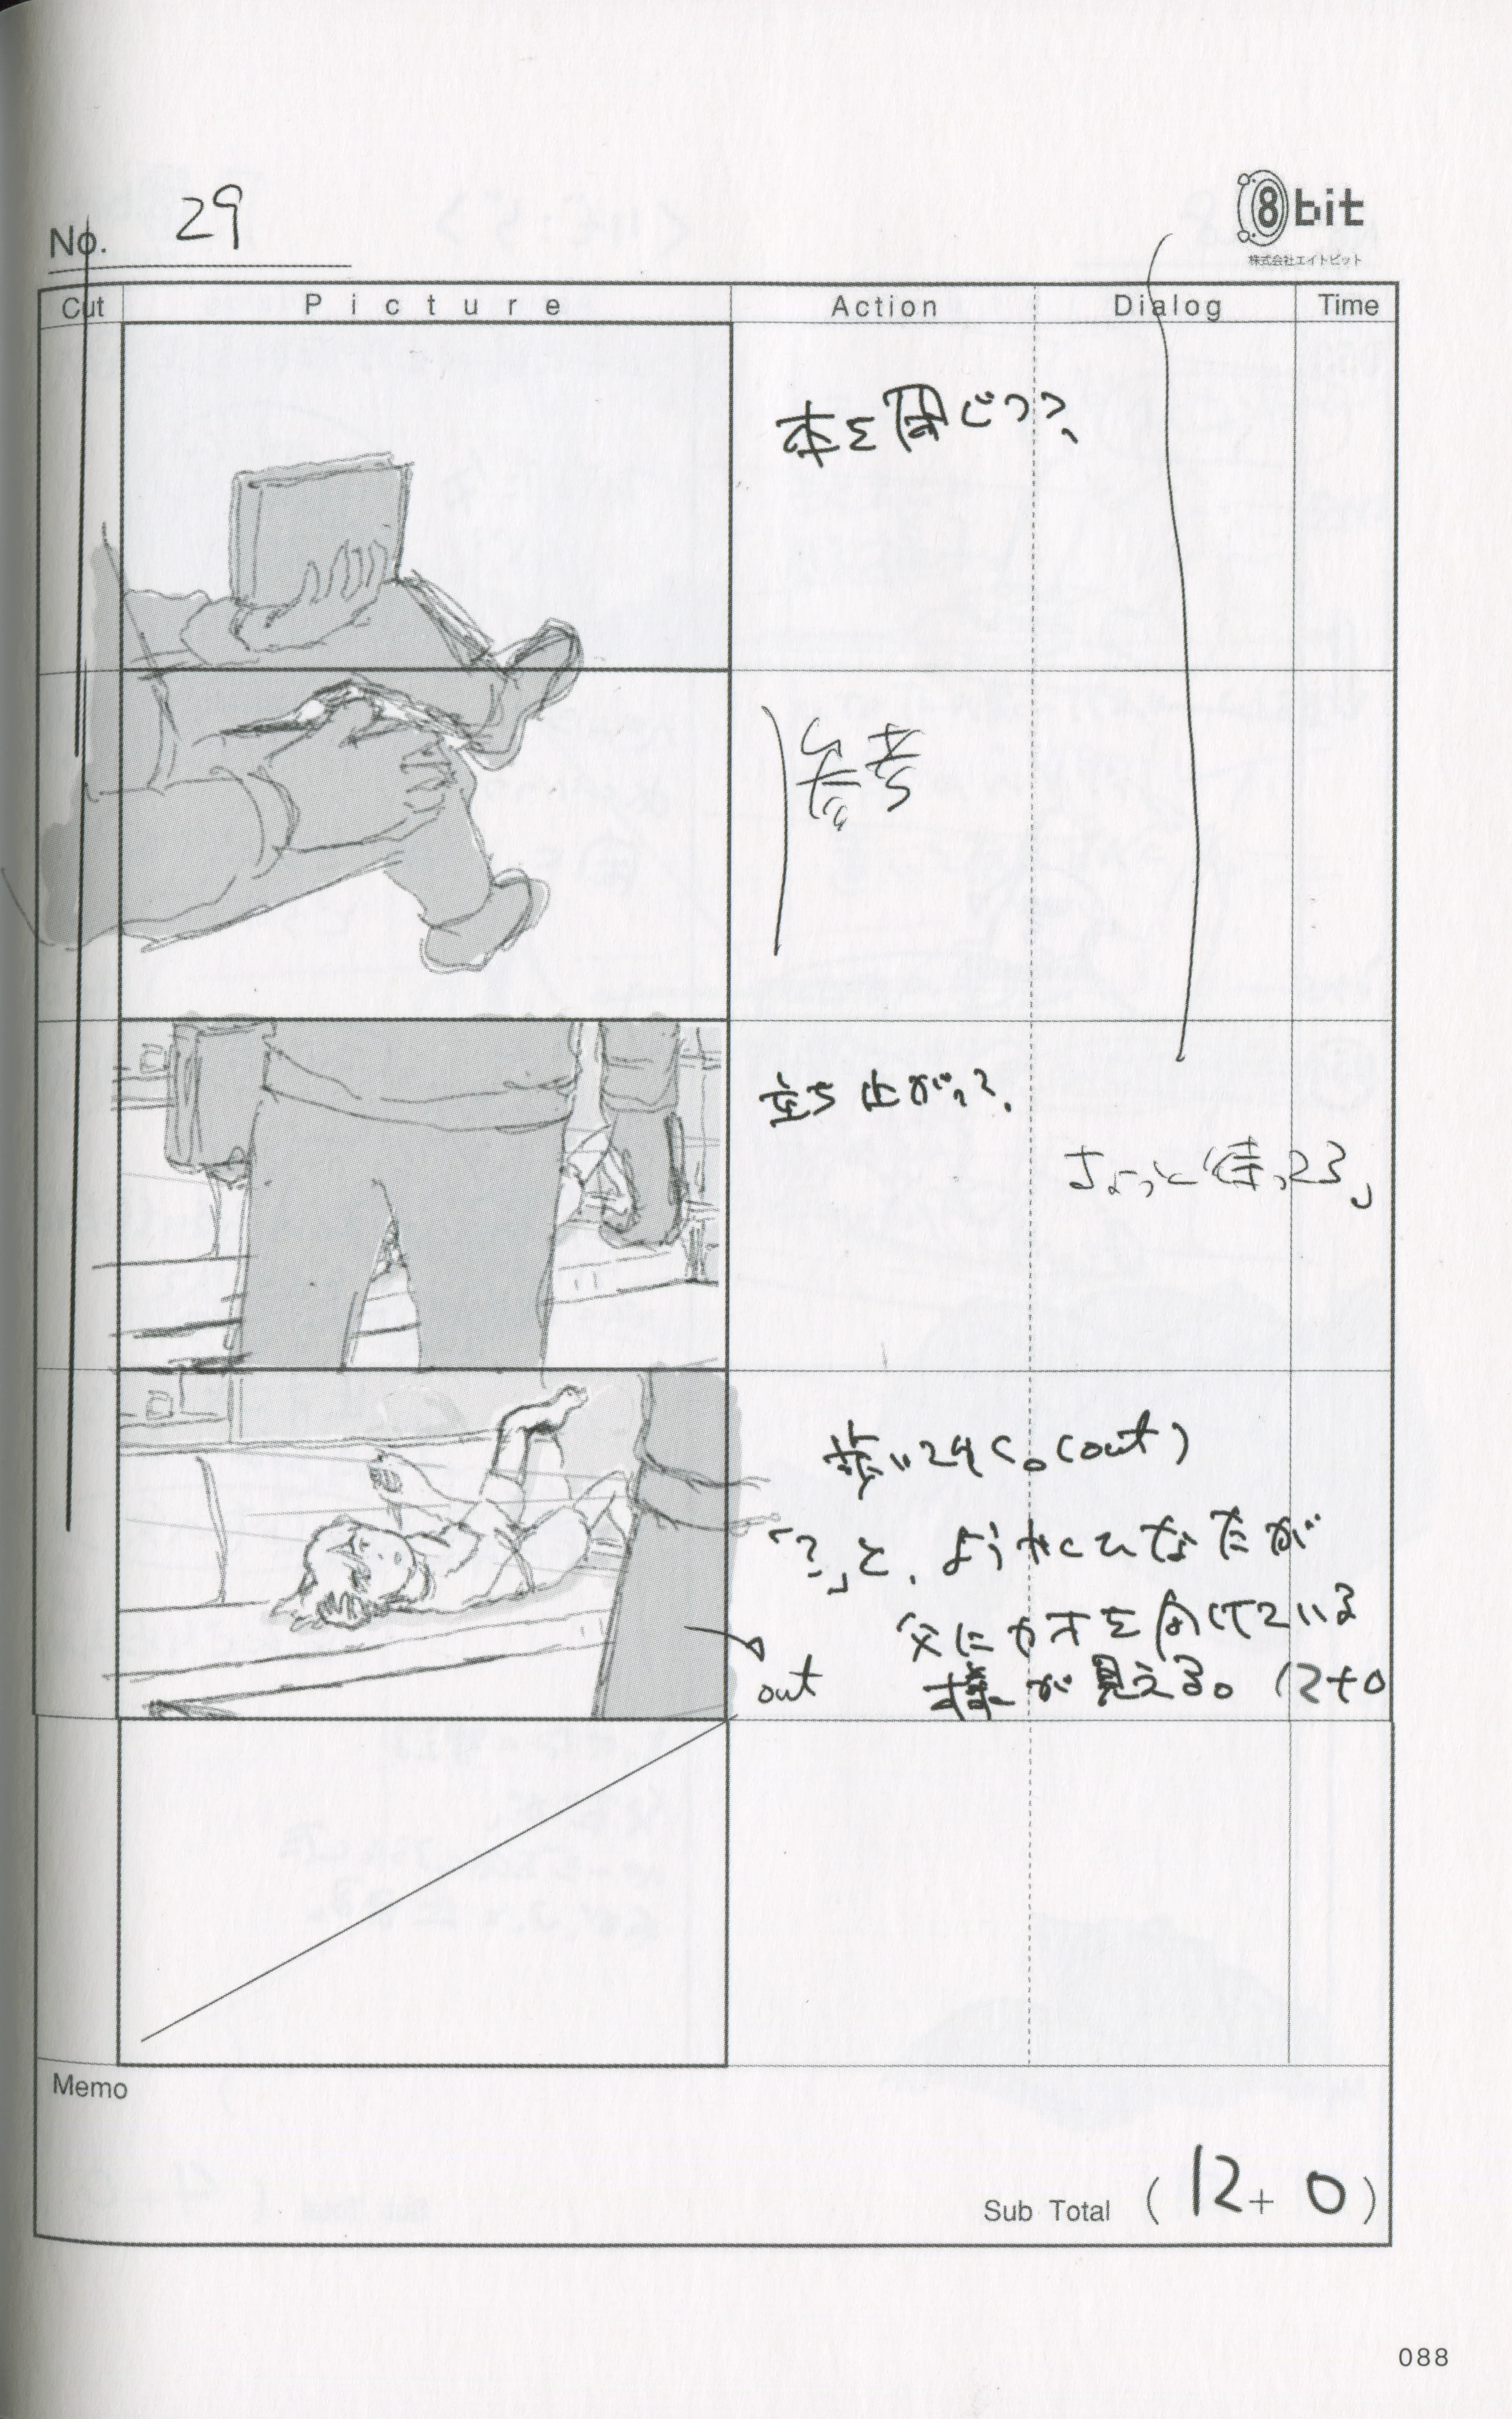 No. 29
8bit
株式会社エイトビット
Cut Picture Action Dialog Time
本を閉じつつ、
参考
立ち上がって、
ちょっと待ってろ」
歩いてゆく。(out)
「?」と、ようやくひなたが
父にカオを向けている
様が見える。(12+0
out
Memo
Sub Total (12+0)
088